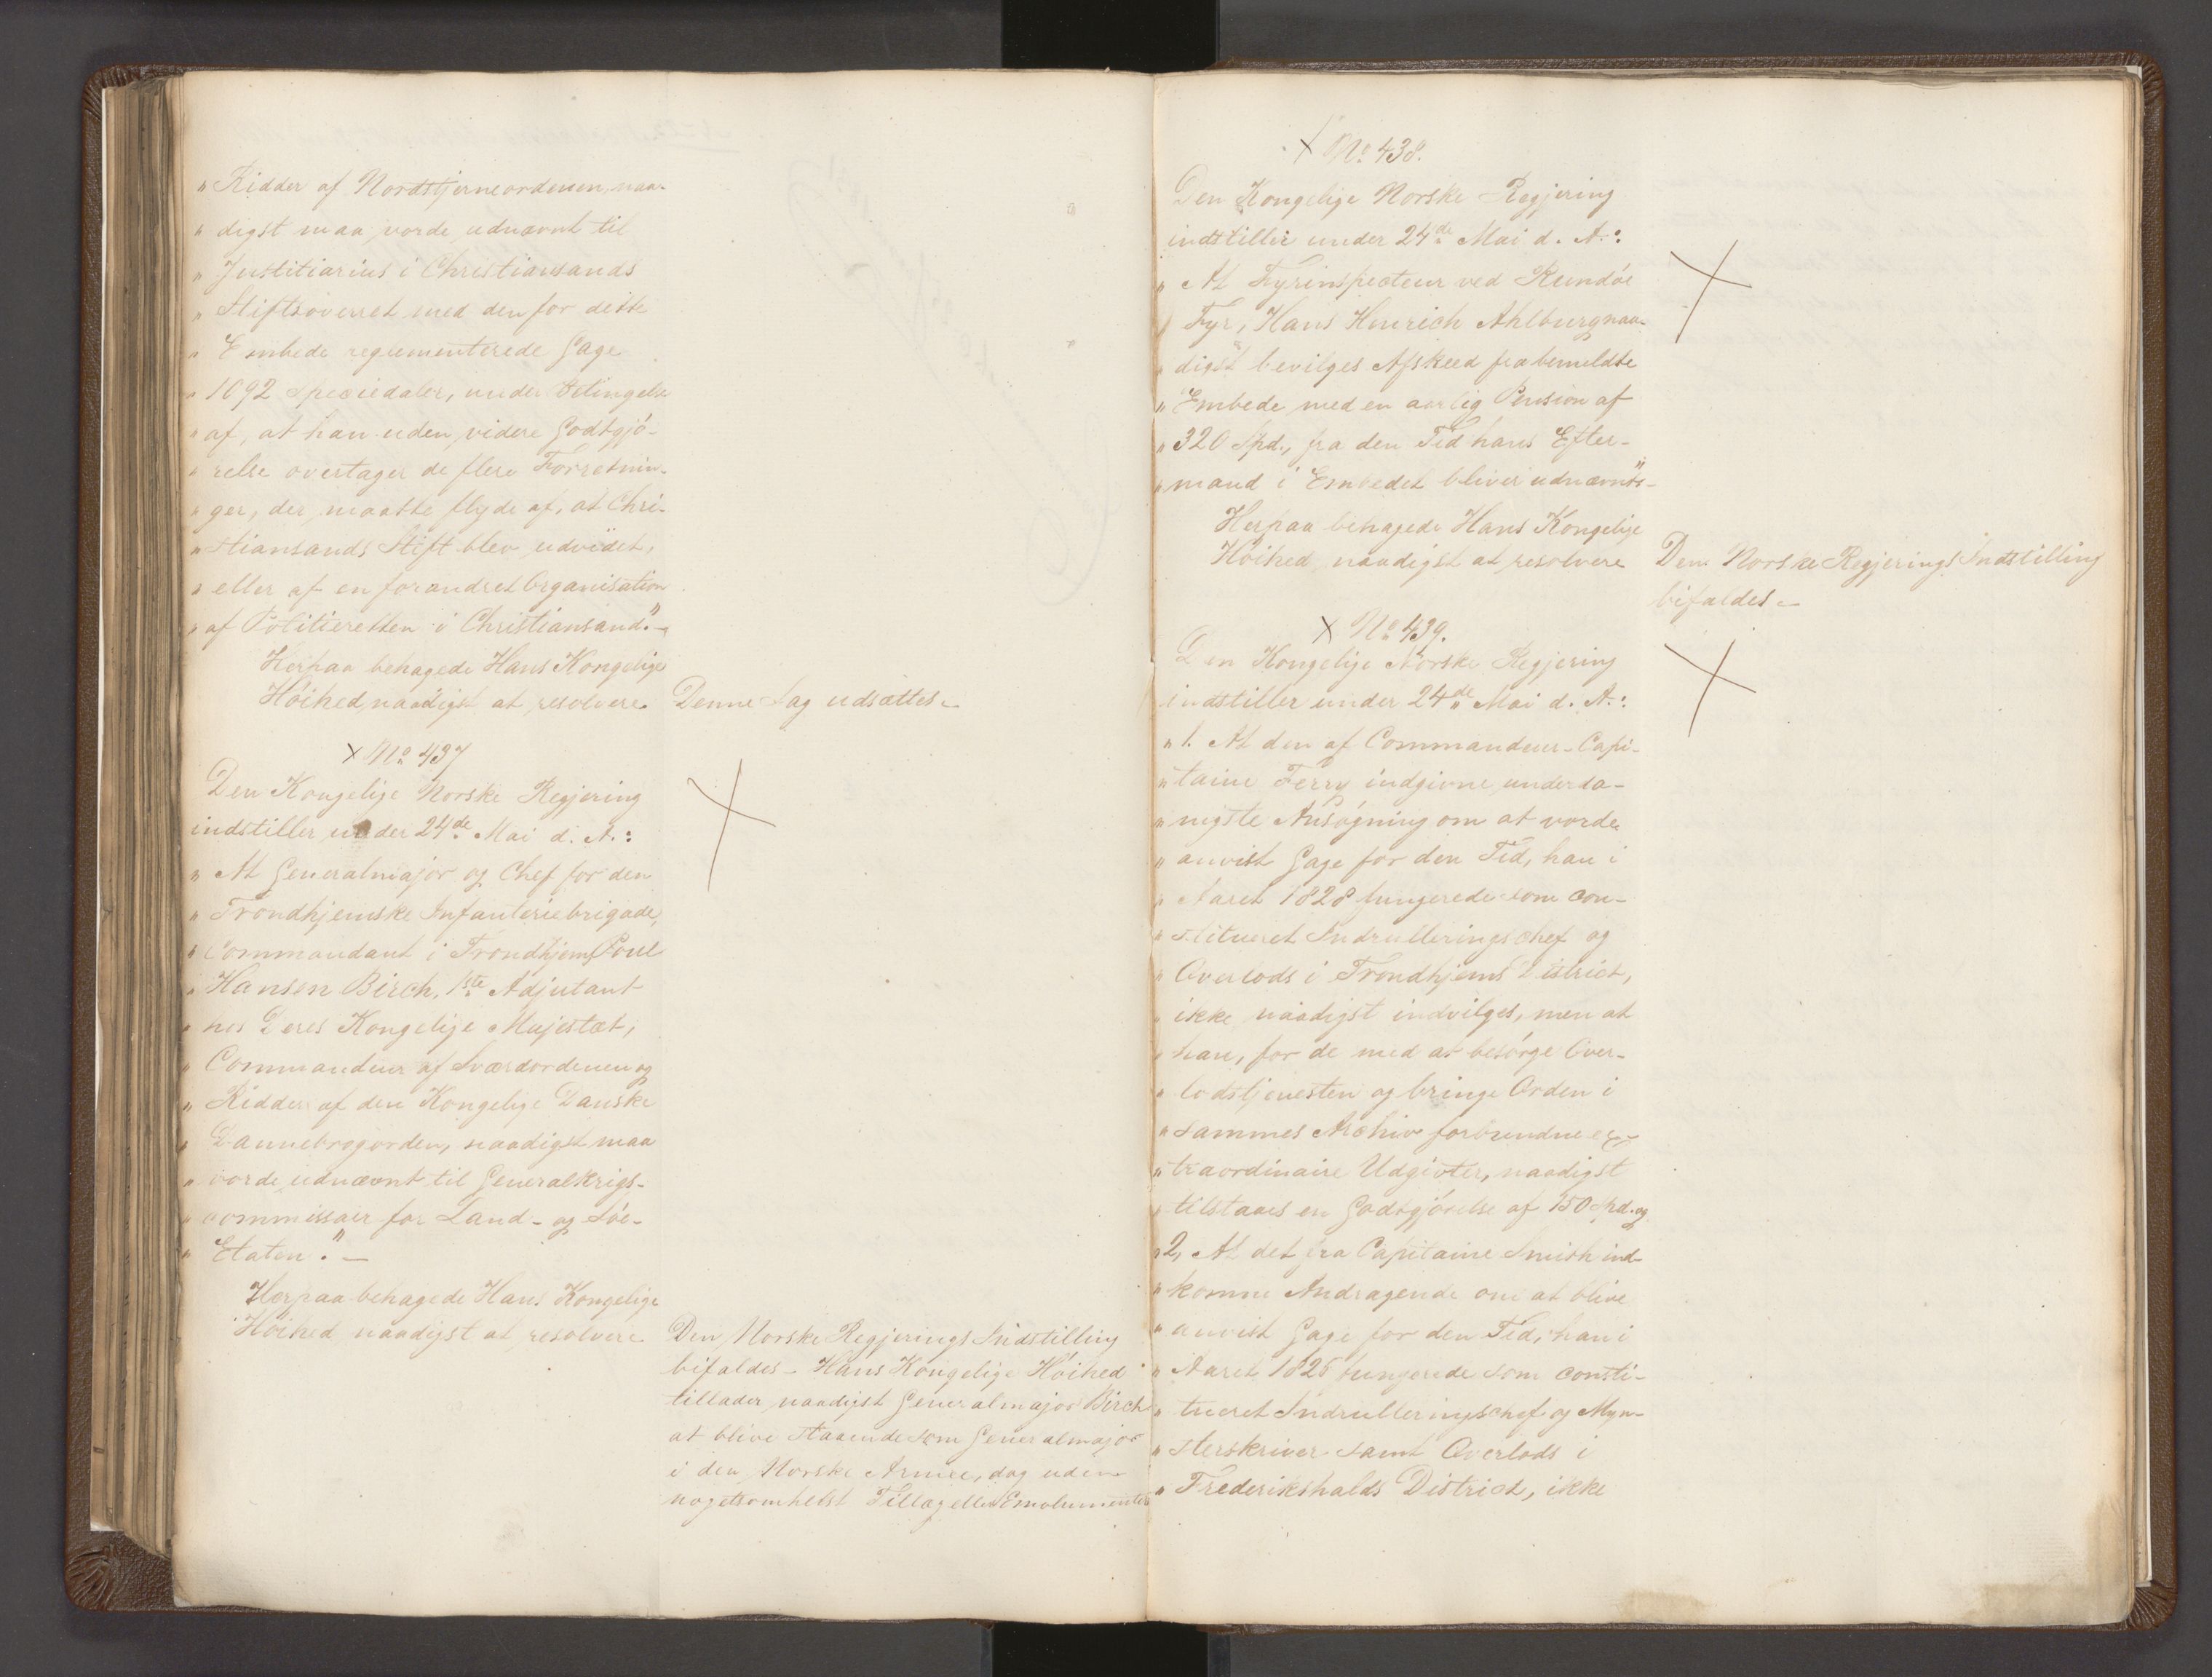 "Ridder af Nordstjerneordenen, naa-
"digst maa vorde udnævnt til
"Justitiarius i Christiansands
"Stiftsoverret med den for dette
"Embede reglementerede Gage
"1092 Speciedaler, under Betingelse
"af, at han uden videre Godtgjö-
"relse overtager de flere Forretnin-
"ger, der maatte flyde af, at Chri-
"stiansands Stift blev udvidet,
"eller af en forandret Organisation
"af Politieretten i Christiansand."-
Herpaa behagede Hans Kongelige
Höihed naadigst at resolvere
Denne Sag udsættes.-
x No 437
Den Kongelige Norske Regjering
indstiller under 24de Mai d. A.:
"At Generalmajor og Chef for den
"Trondhjemske Infanteriebrigade,
"Commandant i Trondhjem, Poul
"Hansen Birch, 1ste Adjutant
"hos Deres Kongelige Majestæt,
"Commandeur af Sværdordenen og
"Ridder af den Kongelige Danske
"Dannebrogorden, naadigst maa
"vorde udnævnt til Generalkrigs-
"commissair for Land- og Söe-
"Etaten."-
Herpaa behagede Hans Kongelige
Höihed naadigst at resolvere
Den Norske Regjerings Indstilling
bifaldes - Hans Kongelige Höihed
tillader naadigst Generalmajor Birch
at blive staaende som Generalmajor
i den Norske Armee, dog uden
nogetsomhelst Tillæg eller Emolumenter
x No 438.
Den Kongelige Norske Regjering
indstiller under 24de Mai d. A.:
"At Fyrinspecteur ved Rundöe
"Fyr, Hans Henrich Ahlburg naa-
"digst bevilges Afskeed fra bemeldte
"Embede med en aarlig Pension af
"320 Spd., fra den Tid hans Efter-
"mand i Embedet bliver udnævnt"-
Herpaa behagede Hans Kongelige
Höihed naadigst at resolvere
Den Norske Regjerings Indstilling
bifaldes.-
x No 439.
Den Kongelige Norske Regjering
indstiller under 24de Mai d. A.:
"1. At den af Commandeur-Capi-
"taine Ferry indgivne underda-
"nigste Ansögning om at vorde
"anvist Gage for den Tid, han i
"Aaret 1828 fungerede som con-
"stitueret Indrulleringschef og
"Overlods i Trondhjems District,
"ikke naadigst indvilges, men at
"han, for de med at besörge Over-
"lodstjenesten og bringe Orden i
"sammes Archiv forbundne ex-
"traordinaire Udgivter, naadigst
"tilstaaes en Godtgjörelse af 150 Spd. og
"2, At det fra Capitaine Smith ind-
"komne Andragende om at blive
"anvist Gage for den Tid, han i
"Aaret 1826 fungerede som consti-
"tueret Indrulleringschef og Myn-
"sterskriver samt Overlods i
"Frederikshalds District, ikke